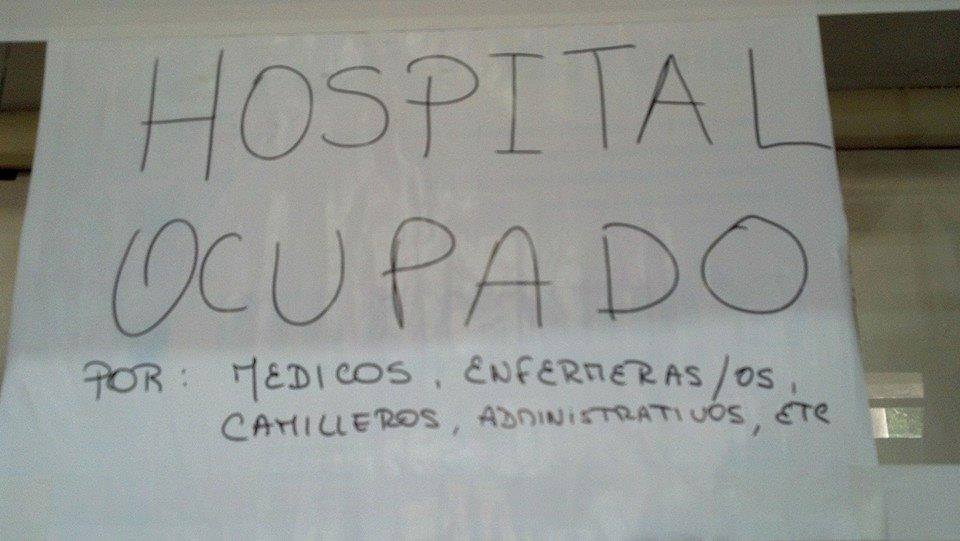 HOSPITAL
OCUPADO
POR: MEDICOS, ENFERMERAS/OS,
CAMILLEROS, ADMINISTRATIVOS, ETC